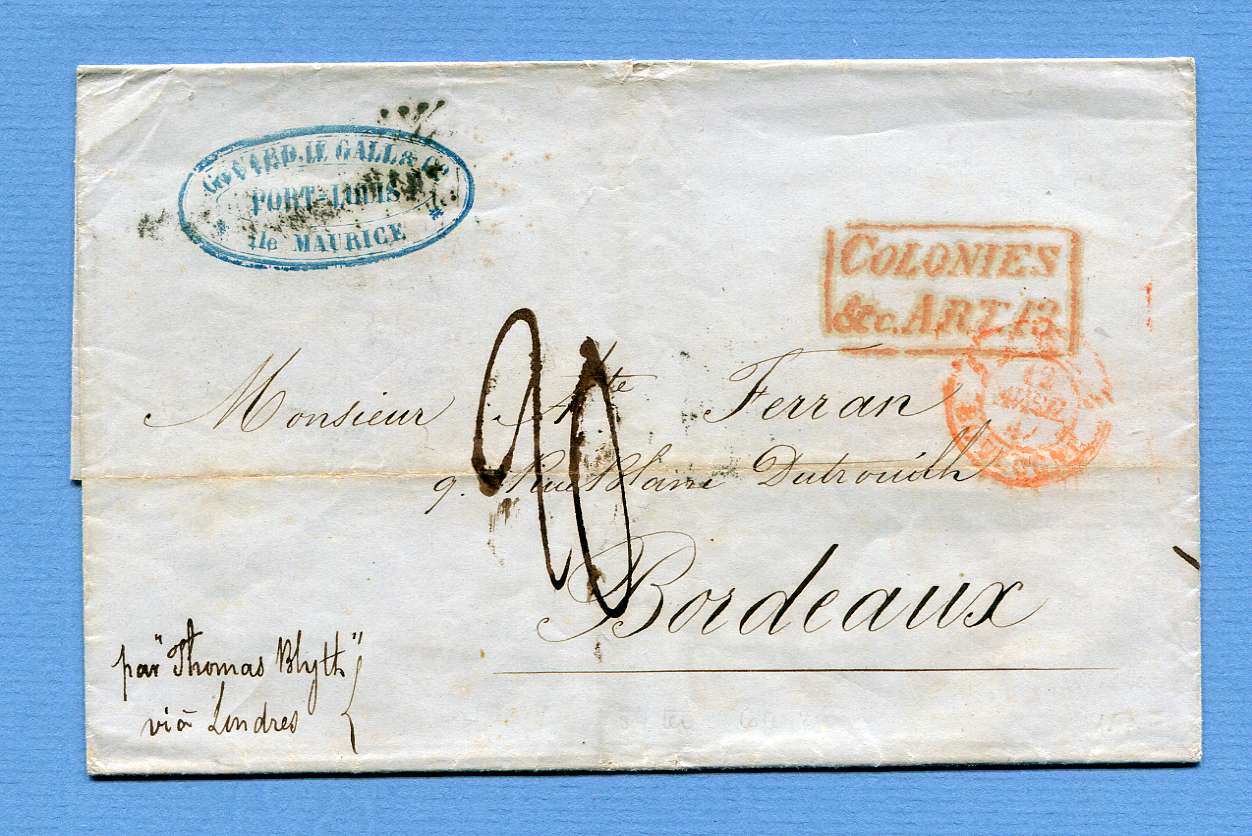 LE GALL & Co
PORT-LOUIS
Ile MAURICE
COLONIES
&c. ART 13
12
Monsieur Ate Ferran
9. Rue Dutrouilh
Bordeaux
par "Thomas Blyth"
viâ Londres